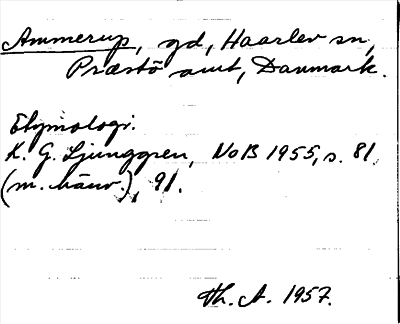 Ammerup, gd, Haarlev sn,
Præstö amt, Danmark.
Etymologi.
K. G. Ljunggren, NoB 1955, s. 81
(m. hänv.), 91.
Th. A. 1957.